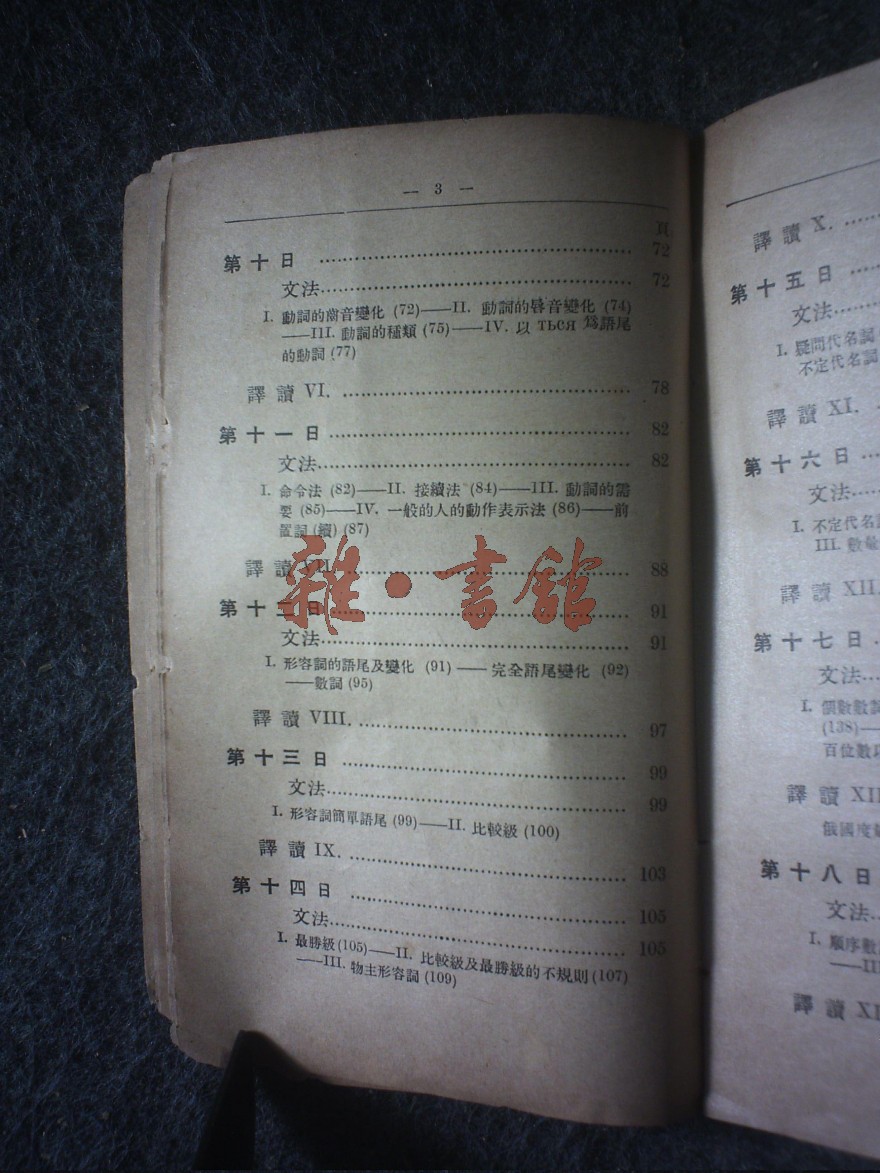 — 3 —
頁
第十日 72
文法 72
I. 動詞的齒音變化 (72)——II. 動詞的唇音變化 (74)
——III. 動詞的種類 (75)——IV. 以 ться 爲語尾
的動詞 (77)
譯讀 VI. 78
第十一日 82
文法 82
I. 命令法 (82)——II. 接續法 (84)——III. 動詞的需
要 (85)——IV. 一般的人的動作表示法 (86)——前
置詞 (續) (87)
譯讀 VII. 88
第十二日 91
文法 91
I. 形容詞的語尾及變化 (91)——完全語尾變化 (92)
——數詞 (95)
譯讀 VIII. 97
第十三日 99
文法 99
I. 形容詞簡單語尾 (99)——II. 比較級 (100)
譯讀 IX. 103
第十四日 105
文法 105
I. 最勝級 (105)——II. 比較級及最勝級的不規則 (107)
——III. 物主形容詞 (109)
雜·書館
譯讀 X.
第十五日
文法
I. 疑問代名詞
不定代名詞
譯讀 XI.
第十六日
文法
I. 不定代名
III. 數量
譯讀 XII.
第十七日
文法
I. 個數數
(138)——
百位數
譯讀 XII
俄國度
第十八日
文法
I. 順序數
——II
譯讀 XI